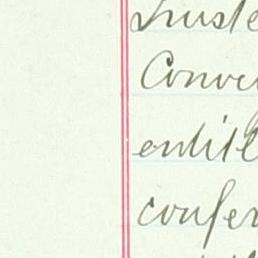 Truste
Conve
entitl
confer